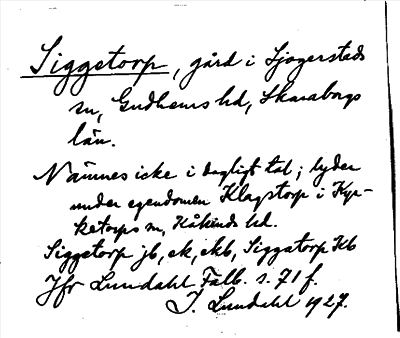 Siggetorp, gård i Sjogersteds
sn, Gudhems hd, Skaraborgs
län.
Nämnes icke i dagligt tal; lyder
under egendomen Klagstorp i Kyr-
ketorps sn, Kåkinds hd.
Siggetorp jb, ek, ekb, Siggatorp Kb
Jfr Lundahl Falb. s. 71 f.
I. Lundahl 1927.